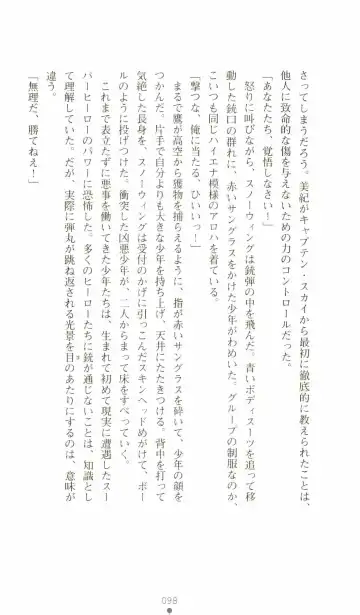 さってしまうだろう。美紀がキャプテン・スカイから最初に徹底的に教えられたことは、
他人に致命的な傷を与えないための力のコントロールだった。
「あなたたち、覚悟しなさい！」
怒りに叫びながら、スノーウィングは銃弾の中を飛んだ。青いボディスーツを追って移
動した銃口の群れに、赤いサングラスをかけた少年がわめいた。グループの制服なのか、
こいつも同じハイエナ模様のアロハを着ている。
「撃つな、俺に当たる、ひいいっ！」
まるで鷹が高空から獲物を捕らえるように、指が赤いサングラスを砕いて、少年の顔を
つかんだ。片手で自分よりも大きな少年を持ち上げ、天井にたたきつける。背中を打って
気絶した長身を、スノーウィングは受付のかげに引っこんだスキンヘッドめがけて、ボー
ルのように投げつけた。衝突した凶悪少年が、二人からまって床をすべっていく。
これまで表立たずに悪事を働いてきた少年たちは、生まれて初めて現実に遭遇したスー
パーヒーローのパワーに恐怖した。多くのヒーローたちに銃が通じないことは、知識とし
て理解していた。だが、実際に弾丸が跳ね返される光景を目のあたりにするのは、意味が
違う。
「無理だ、勝てねえ！」
098